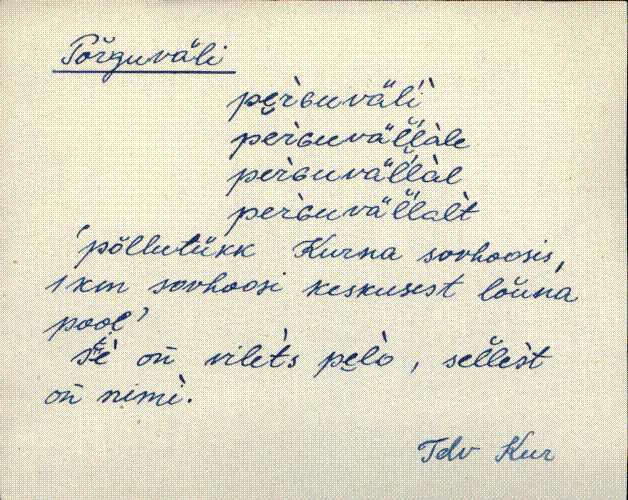 Põrguväli
pe̮rɢuväli
perɢuväl̆l̀ale
perɢuväl̆l̀al
perɢuväl̆l̀alt
'põllutükk Kurna sovhoosis,
1 km sovhoosi keskusest lõuna
pool'
on̄ vilèts pe̮lò, sel̆lèst
on̄ nimì.
Kur